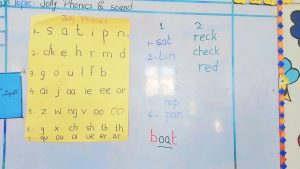 Topic: Jolly Phonics & sound
Jolly Phonics
1- s a t i p n.
2- ck e h r m d
3 g o u l f b
4 ai j oa ie ee or
5- z w ng v oo oo
6- y x ch sh th th
7- qu ou oi ue er ar
1
1- sat
2- tin
nip
6- pan
boat
2
reck
check
red